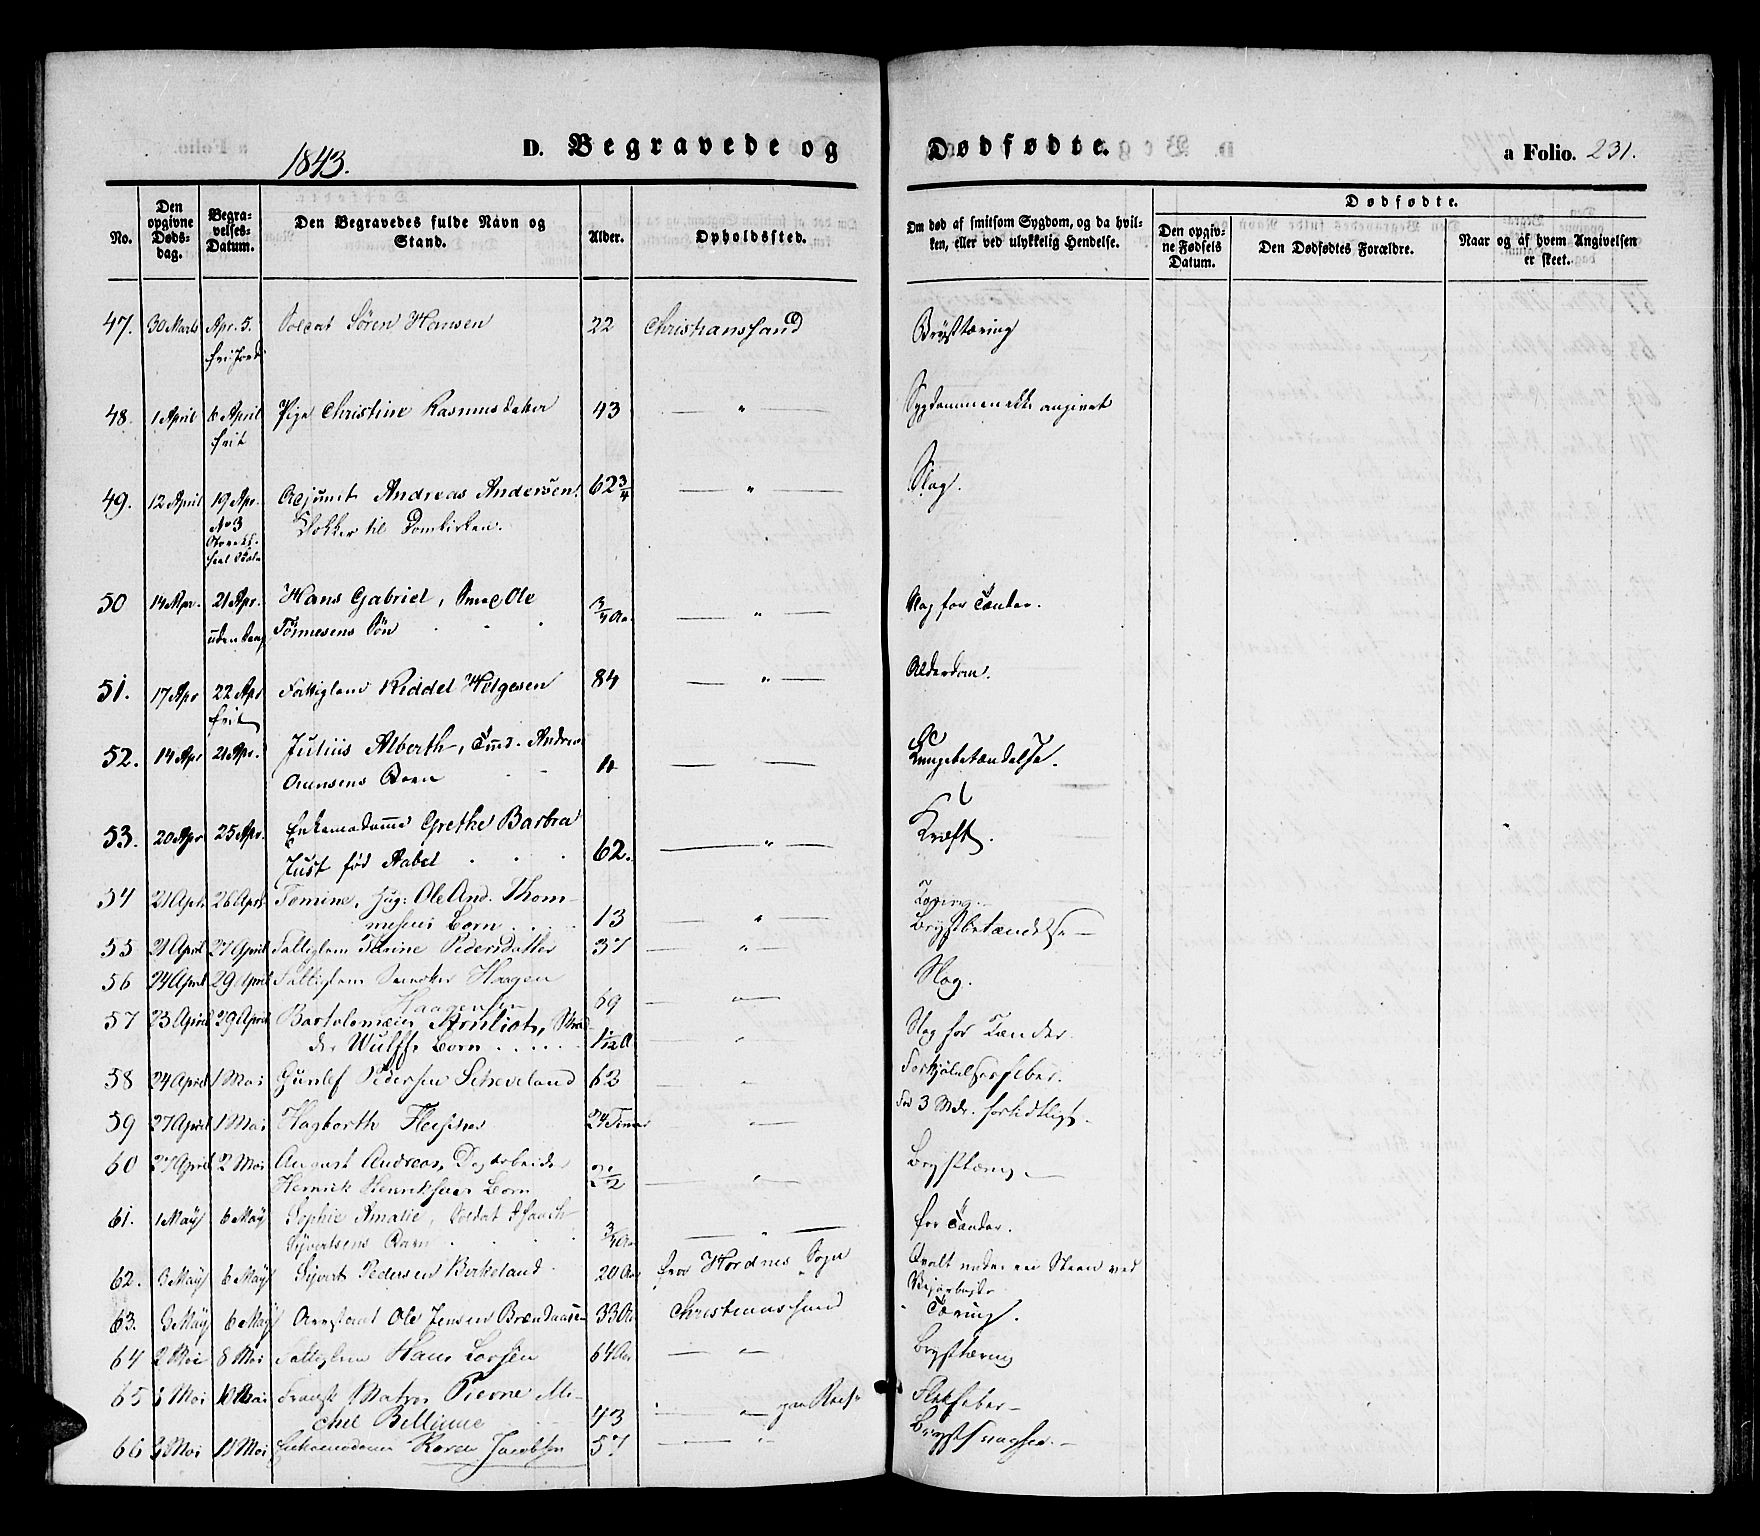 1843.
D. Begravede og Dødfødte.
a Folio. 231.
No.
Den opgivne Dødsdag.
Begravelses-Datum.
Den Begravedes fulde Navn og Stand.
Alder.
Opholdssted.
Om død af smitsom Sygdom, og da hvilken, eller ved ulykkelig Hendelse.
Dødfødte.
Den opgivne Fødsels Datum.
Den Dødfødtes Forældre.
Naar og af hvem Angivelsen er skeet.
47. 30 Marts Apr. 5. Soldat Sören Hansen 22 Christianssand Brysttæring
fri Jord
48. 1 April 6 April Pige Christine Rasmusdatter 43 — " — Sygdommen ikke angivet
frit
49. 12 April 19 Apr. Adjunct Andreas Andersen. 62 3/4 — " — Slag.
No 3
Klokker til Domkirken.
50 14 Apr. 21 Apr. Hans Gabriel, Ole 3/4 Aar — " — Slag for Tænder.
uden Sang Tönnesens Sön
51. 17 Apr 22 Apr Fattiglem Riddel Helgesen 84 — " — Alderdom.
frit
52. 14 Apr 21 Apr. Julius Alberth, Tmd. Andreas
Børn — " — Lungebetændelse.
53. 20 Apr 25 Apr. Enkemadame Grethe Barbra
Just fød Aabel 62. — " — Kræft.
54 21 Apr. 26 April Tomine, Ole And. Thom-
mesens Børn 13 — " — Tæring.
55 21 April 27 April Fattiglem Tarine Pedersdatter 37 — " — Brystbetændelse —
56 24 April 29 April Fattiglem Haagen
Haagensen 69 — " — Slag.
57 23 April 29 April Bartolomæus
Wulffs Børn 1/12 A " Slag for Tænder.
58 24 April 1 Mai Gunlef Pedersen Scheveland 62 " Forkjølelsesfeber.
59 27 April 1 Mai Hagbarth 24 Timer — " — Fød 3 Mdr. for tidligt.
60 27 April 2 Mai August Andreas, Dagarbeider
Henrik Henriksens Børn — " — Brysttæring —
61. 1 May 6 May Sophie Amalie, Soldat Isaach
Syvertsens Barn 3/4 Aar — " — for Tænder.
62. 3 May 6 May Syvert Pedersen Birkeland 20 Aar fra Hordnes Sogn Qvalt under en Steen ved
Veiarbeide
63. 3 May 6 May Arrestant Ole Jensen Brændaasen 33 Aar Christianssand Tæring.
64 2 Mai 8 Mai Fattiglem Hans Larsen 64 Aar — " — Brysttæring
65 5 Mai 10 Mai Fransk Matros Pierre Mi-
chel Bellime 43 — " — paa Reise
66 Mai 11 Mai Enkemadame Karen Jacobsen 57 — " — Brystsvaghed. —